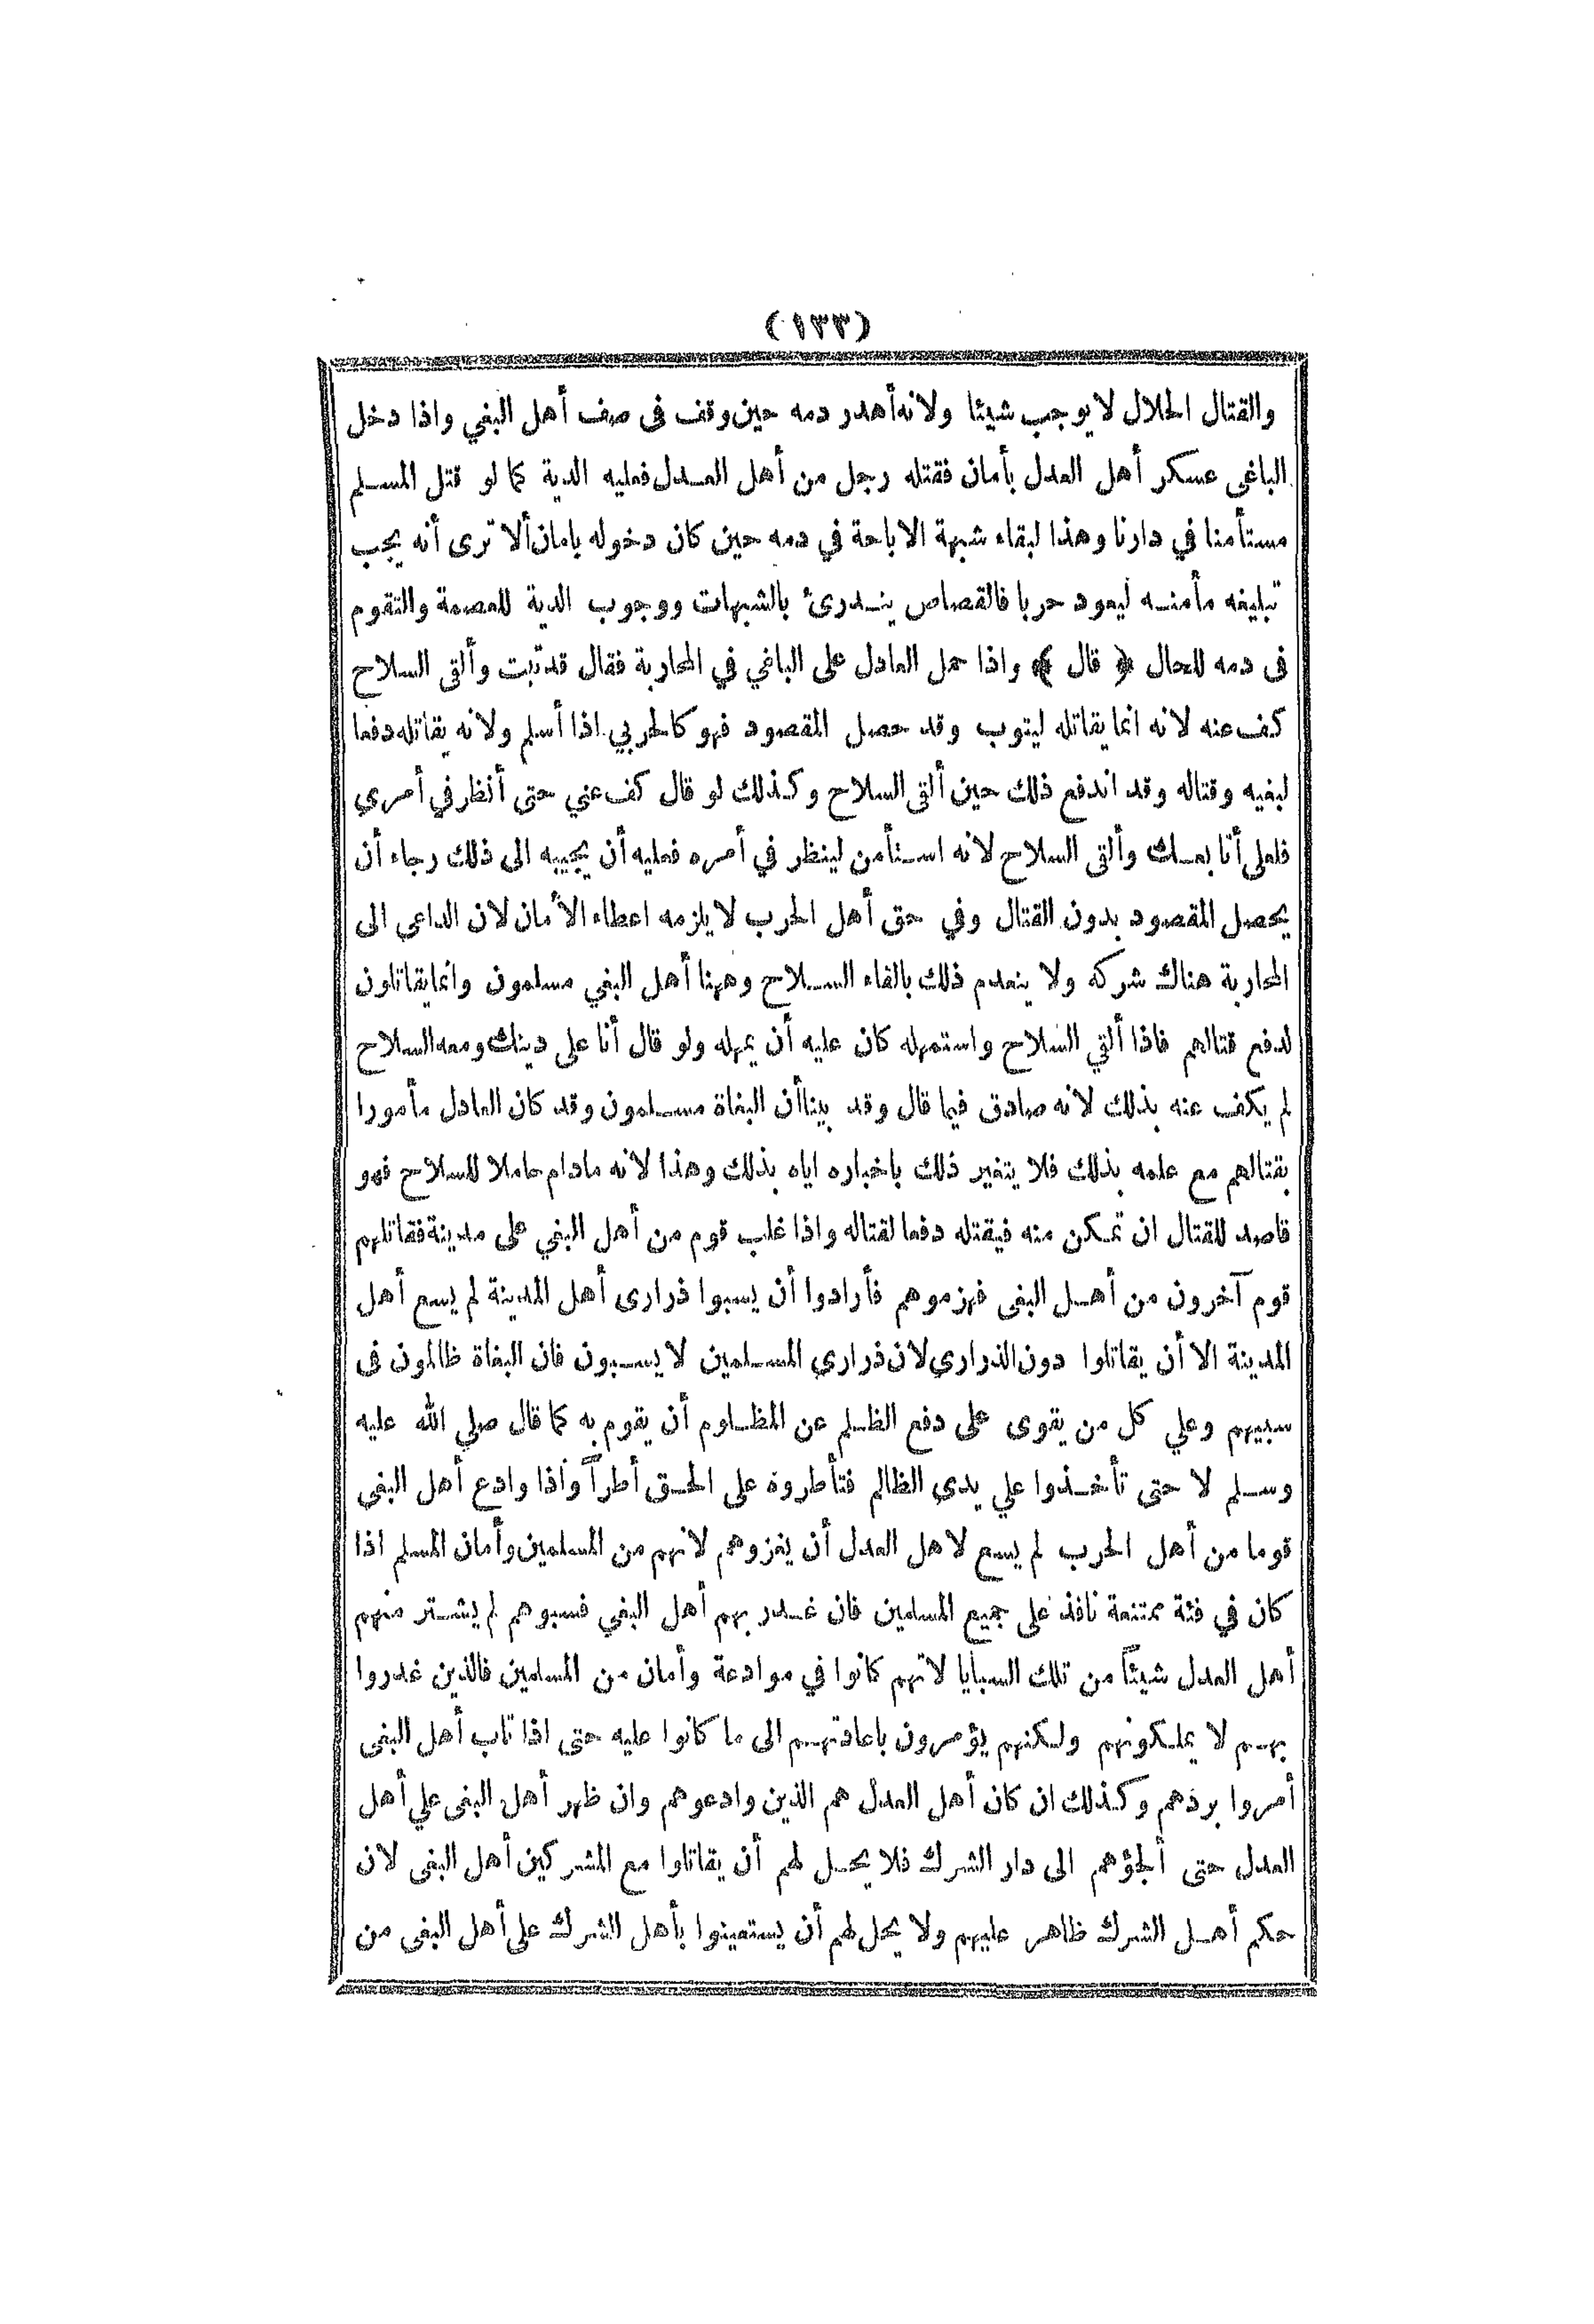 (١٣٣)
والقتال الحلال لا يوجب شيئا ولانه أهدر دمه حين وقف فى صف أهل البغي واذا دخل
الباغى عسكر أهل العدل بأمان فقتله رجل من أهل العدل فعليه الدية كما لو قتل المسلم
مستأمنا في دارنا وهذا لبقاء شبهة الاباحة في دمه حين كان دخوله بامان ألا ترى أنه يجب
تبليغه مأمنه ليعود حربا فالقصاص يندرئ بالشبهات ووجوب الدية للعصمة والتقوم
فى دمه للحال ﴿ قال ﴾ واذا حمل العادل على الباغي في المحاربة فقال قد تبت وألقى السلاح
كف عنه لانه انما يقاتله ليتوب وقد حصل المقصود فهو كالحربي اذا أسلم ولانه يقاتله دفعا
لبغيه وقتاله وقد اندفع ذلك حين ألقى السلاح وكذلك لو قال كف عني حتى أنظر في أمري
فلعلى أتابعك وألقى السلاح لانه استأمن لينظر في أمره فعليه أن يجيبه الى ذلك رجاء أن
يحصل المقصود بدون القتال وفي حق أهل الحرب لا يلزمه اعطاء الأمان لان الداعى الى
المحاربة هناك شركه ولا ينعدم ذلك بالقاء السلاح وههنا أهل البغي مسلمون وانما يقاتلون
لدفع قتالهم فاذا ألقي السلاح واستمهله كان عليه أن يمهله ولو قال أنا على دينك ومعه السلاح
لم يكف عنه بذلك لانه صادق فيما قال وقد بينا أن البغاة مسلمون وقد كان العادل مأمورا
بقتالهم مع علمه بذلك فلا يتغير ذلك باخباره اياه بذلك وهذا لانه مادام حاملا للسلاح فهو
قاصد للقتال ان تمكن منه فيقتله دفعا لقتاله واذا غلب قوم من أهل البغي على مدينة فقاتلهم
قوم آخرون من أهل البغى فهزموهم فأرادوا أن يسبوا ذرارى أهل المدينة لم يسع أهل
المدينة الا أن يقاتلوا دون الذراري لان ذراري المسلمين لا يسبون فان البغاة ظالمون فى
سبيهم وعلي كل من يقوى على دفع الظلم عن المظلوم أن يقوم به كما قال صلي الله عليه
وسلم لا حتى تأخذوا علي يدى الظالم فتأطروه على الحق أطراً واذا وادع أهل البغى
قوما من أهل الحرب لم يسع لاهل العدل أن يغزوهم لانهم من المسلمين وأمان المسلم اذا
كان في فئة ممتنعة نافذ على جميع المسلمين فان غدر بهم أهل البغي فسبوهم لم يشتر منهم
أهل العدل شيئاً من تلك السبايا لانهم كانوا في موادعة وأمان من المسلمين فالذين غدروا
بهم لا يملكونهم ولكنهم يؤمرون باعادتهم الى ما كانوا عليه حتى اذا تاب أهل البغى
أمروا بردهم وكذلك ان كان أهل العدل هم الذين وادعوهم وان ظهر أهل البغى علي أهل
العدل حتى ألجؤهم الى دار الشرك فلا يحل لهم أن يقاتلوا مع المشركين أهل البغى لان
حكم أهل الشرك ظاهر عليهم ولا يحل لهم أن يستعينوا بأهل الشرك على أهل البغى من